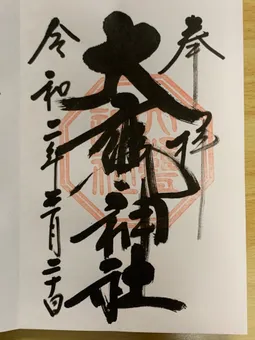 奉拝
大甕神社
令和二年 月二十日